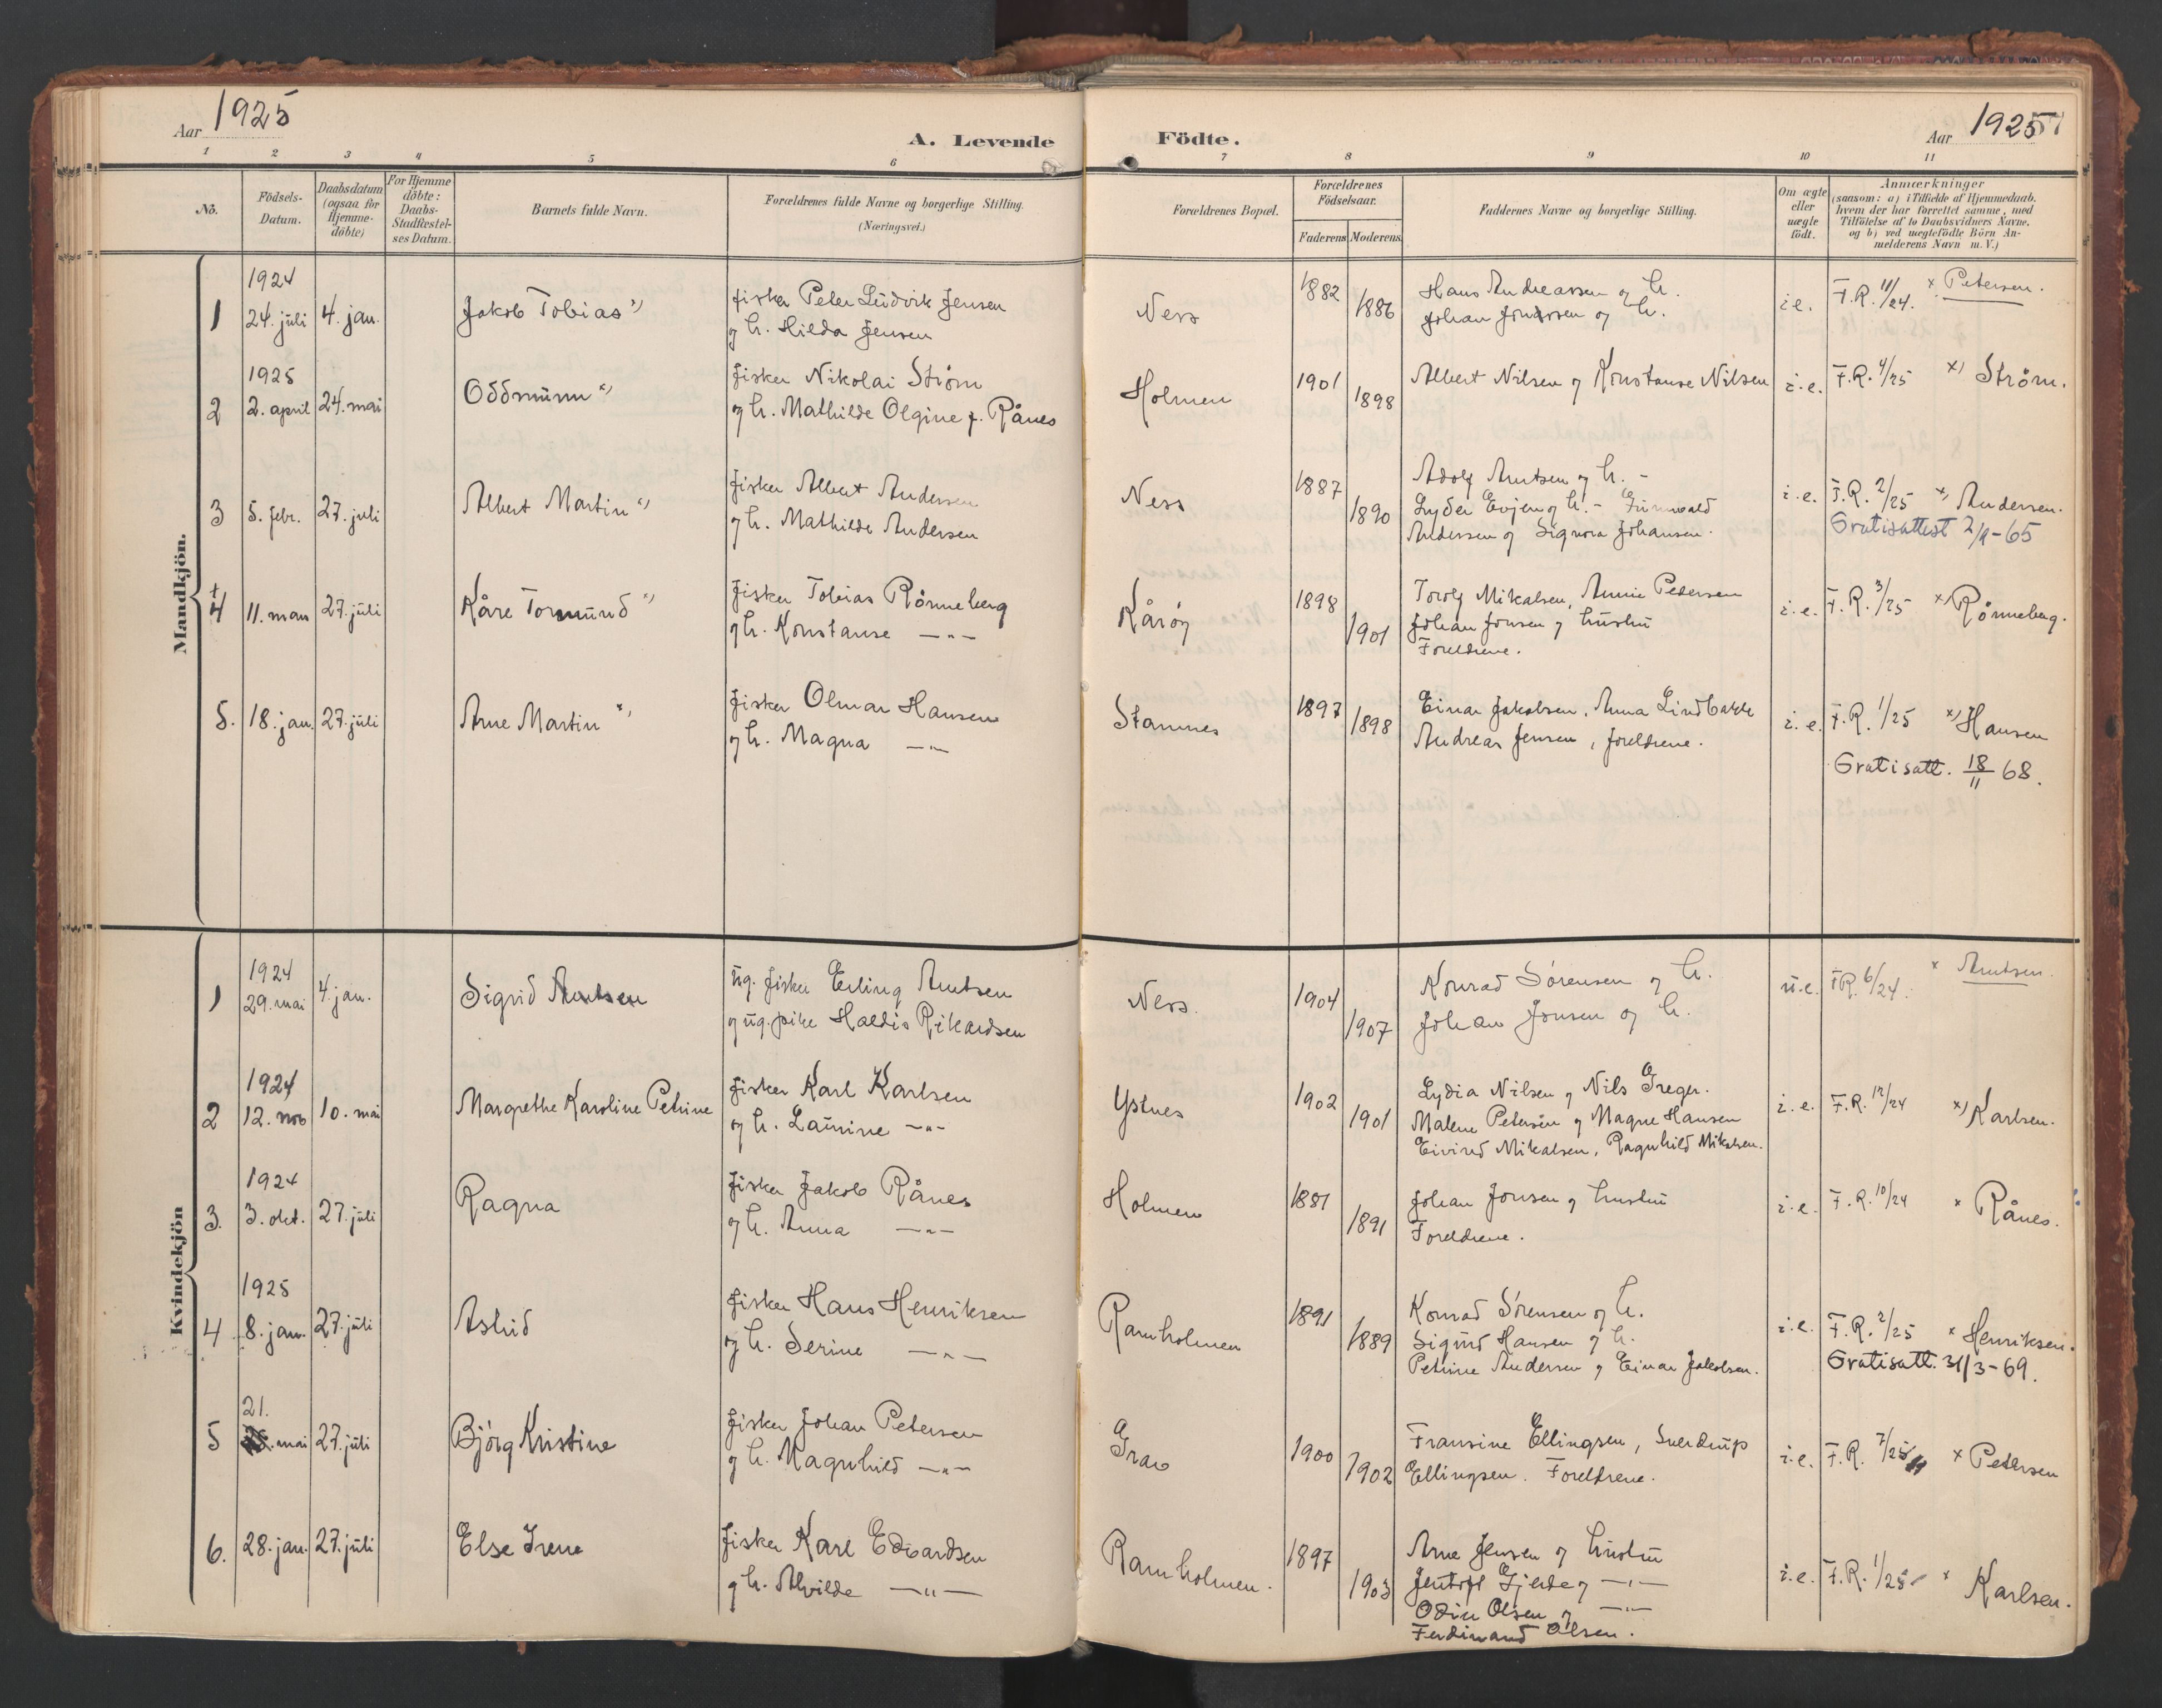 Aar 1925
A. Levende
Födte.
Aar 1925
1 2 3 4 5 6 7 8 9 10 11
No.
Födsels-Datum.
Daabsdatum (ogsaa for Hjemme-döbte)
For Hjemme döbte: Daabs-Stadfæstel-ses Datum.
Barnets fulde Navn.
Forældrenes fulde Navne og borgerlige Stilling. (Næringsvei.)
Forældrenes Bopæl.
Forældrenes Födselsaar.
Faderens Moderens
Faddernes Navne og borgerlige Stilling.
Om ægte eller uægte födt.
Anmærkninger
(saasom: a) i Tilfælde af Hjemmedaab. hvem der har forrettet samme, med Tilföielse af to Daabsvidners Navne, og b) ved uægtefödte Börn An-melderens Navn m. V.)
Mandkjön.
1924
1 24. juli 4. jan. Jakob Tobias x) fisker Peter Ludvik Jensen Ness 1882 Hans Andreassen og h. i.e. F.R. 11/24. x Petersen.
og h. Hilda Jensen 1886 Johan Jonassen og h.
1925
2 2. april 24. mai Oddmunn x) fisker Nikolai Strøm Holmen 1901 Albert Nilsen og Konstanse Nilsen i.e. F.R. 4/25 x) Strøm.
og h. Mathilde Olgine f. Rånes 1898
3 5. febr. 27. juli Albert Martin x) fisker Albert Andersen Ness 1887 Adolf Arntsen og h. - i.e. F.R. 2/25 x) Andersen.
og h. Mathilde Andersen 1890 Lyder Evjen og h. - Grunwald Gratisattest 2/9-65
Andersen og Signora Johansen.
+
4 11. mars 27. juli Kåre Tormund x) fisker Tobias Rønneberg Kårøy 1898 Torolf Mikalsen, Annie Petersen i.e. F.R. 3/25 x) Rønneberg.
og h. Konstanse —"— 1901 Johan Jonsen og hustru
Foreldrene.
5. 18. jan. 27. juli Arne Martin x) fisker Olmar Hansen Stamnes 1897 Einar Jakobsen, Anna Lindbakk i.e. F.R. 1/25 x) Hansen
og h. Magna —"— 1898 Andreas Jensen, foreldrene.
Gratisatt. 18/11 68.
Kvindekjön
1924
1 29. mai 4. jan. Sigrid Arntsen ug. fisker Erling Arntsen Ness. 1904 Konrad Sørensen og h. u.e. FR. 6/24. x Arntsen.
og ug. pike Haldis Rikardsen 1907 Johan Jonsen og h.
1924
2 12. nov 10. mai Margrethe Karoline Petrine fisker Karl Karlsen Ystnes 1902 Lydia Nilsen og Nils Greger. i.e. F.R. 12/24 x) Karlsen.
og h. Laurine —"— 1901 Malene Petersen og Magne Hansen
Eivind Mikalsen, Ragnhild Mikalsen.
1924
3. 3. okt. 27. juli Ragna fisker Jakob Rånes Holmen 1881 Johan Jonsen og hustru i.e. F.R. 10/24 x Rånes.
og h. Anna —"— 1891 Foreldrene.
1925
4 8. jan. 27. juli Astrid fisker Hans Henriksen Ramholmen 1891 Konrad Sørensen og h. i.e. F.R. 2/25 x Henriksen.
og h. Serine —"— 1889 Sigurd Hansen og h. Gratisatt. 31/3-69.
Petrine Andersen og Einar Jakobsen.
21.
5 mai 27. juli Bjørg Kristine fisker Johan Petersen Grav 1900 Fransine Ellingsen, Sverdrup i.e. F.R. 7/25 x Petersen
og h. Magnhild —"— 1902 Ellingsen. Foreldrene.
6. 28. jan. 27. juli Else Irene fisker Karl Edvardsen Ramholmen. 1897 Arne Jensen og hustru i.e. F.R. 1/25 x Karlsen.
og h. Alvilde —"— 1903 Jentoft Gjelde og —"—
Odin Olsen og —"—
Ferdinand Olsen.